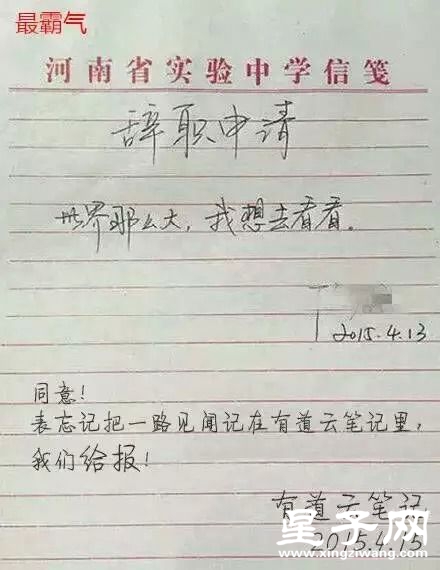 最霸气
河南省实验中学信笺
辞职申请
世界那么大，我想去看看。
2015.4.13
同意！
表忘记把一路见闻记在有道云笔记里，
我们给报！
有道云笔记
2015.4.15
星子网
www.xingziwang.com